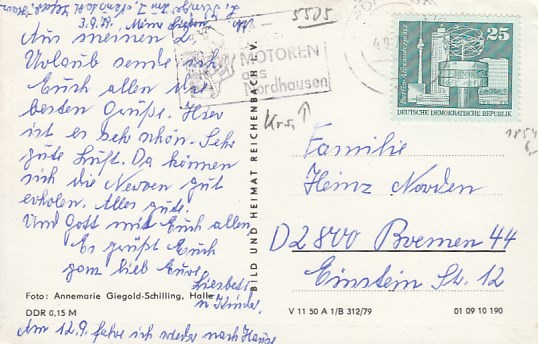 3.9.81. Meine Lieben
Aus meinen 2.
Urlaub sende ich
Euch allen die
besten Grüße. Hier
ist es sehr schön. Sehr
gute Luft. Da können
sich die Nerven gut
erholen. Alles gute.
Und Gott mit Euch allen
Es grüßt Euch
ganz lieb Eure
Liesbeth
u. Kinder.
Am 12.9. fahre ich wieder nach Hause
Foto: Annemarie Giegold-Schilling, Halle
DDR 0,15 M
BILD UND HEIMAT REICHENBACH i. V.
5505
MOTOREN
aus
Nordhausen
25
DEUTSCHE DEMOKRATISCHE REPUBLIK
Familie
Heinz Norden
D2800 Bremen 44
Einstein Str. 12
V 11 50 A 1/B 312/79
01 09 10 190